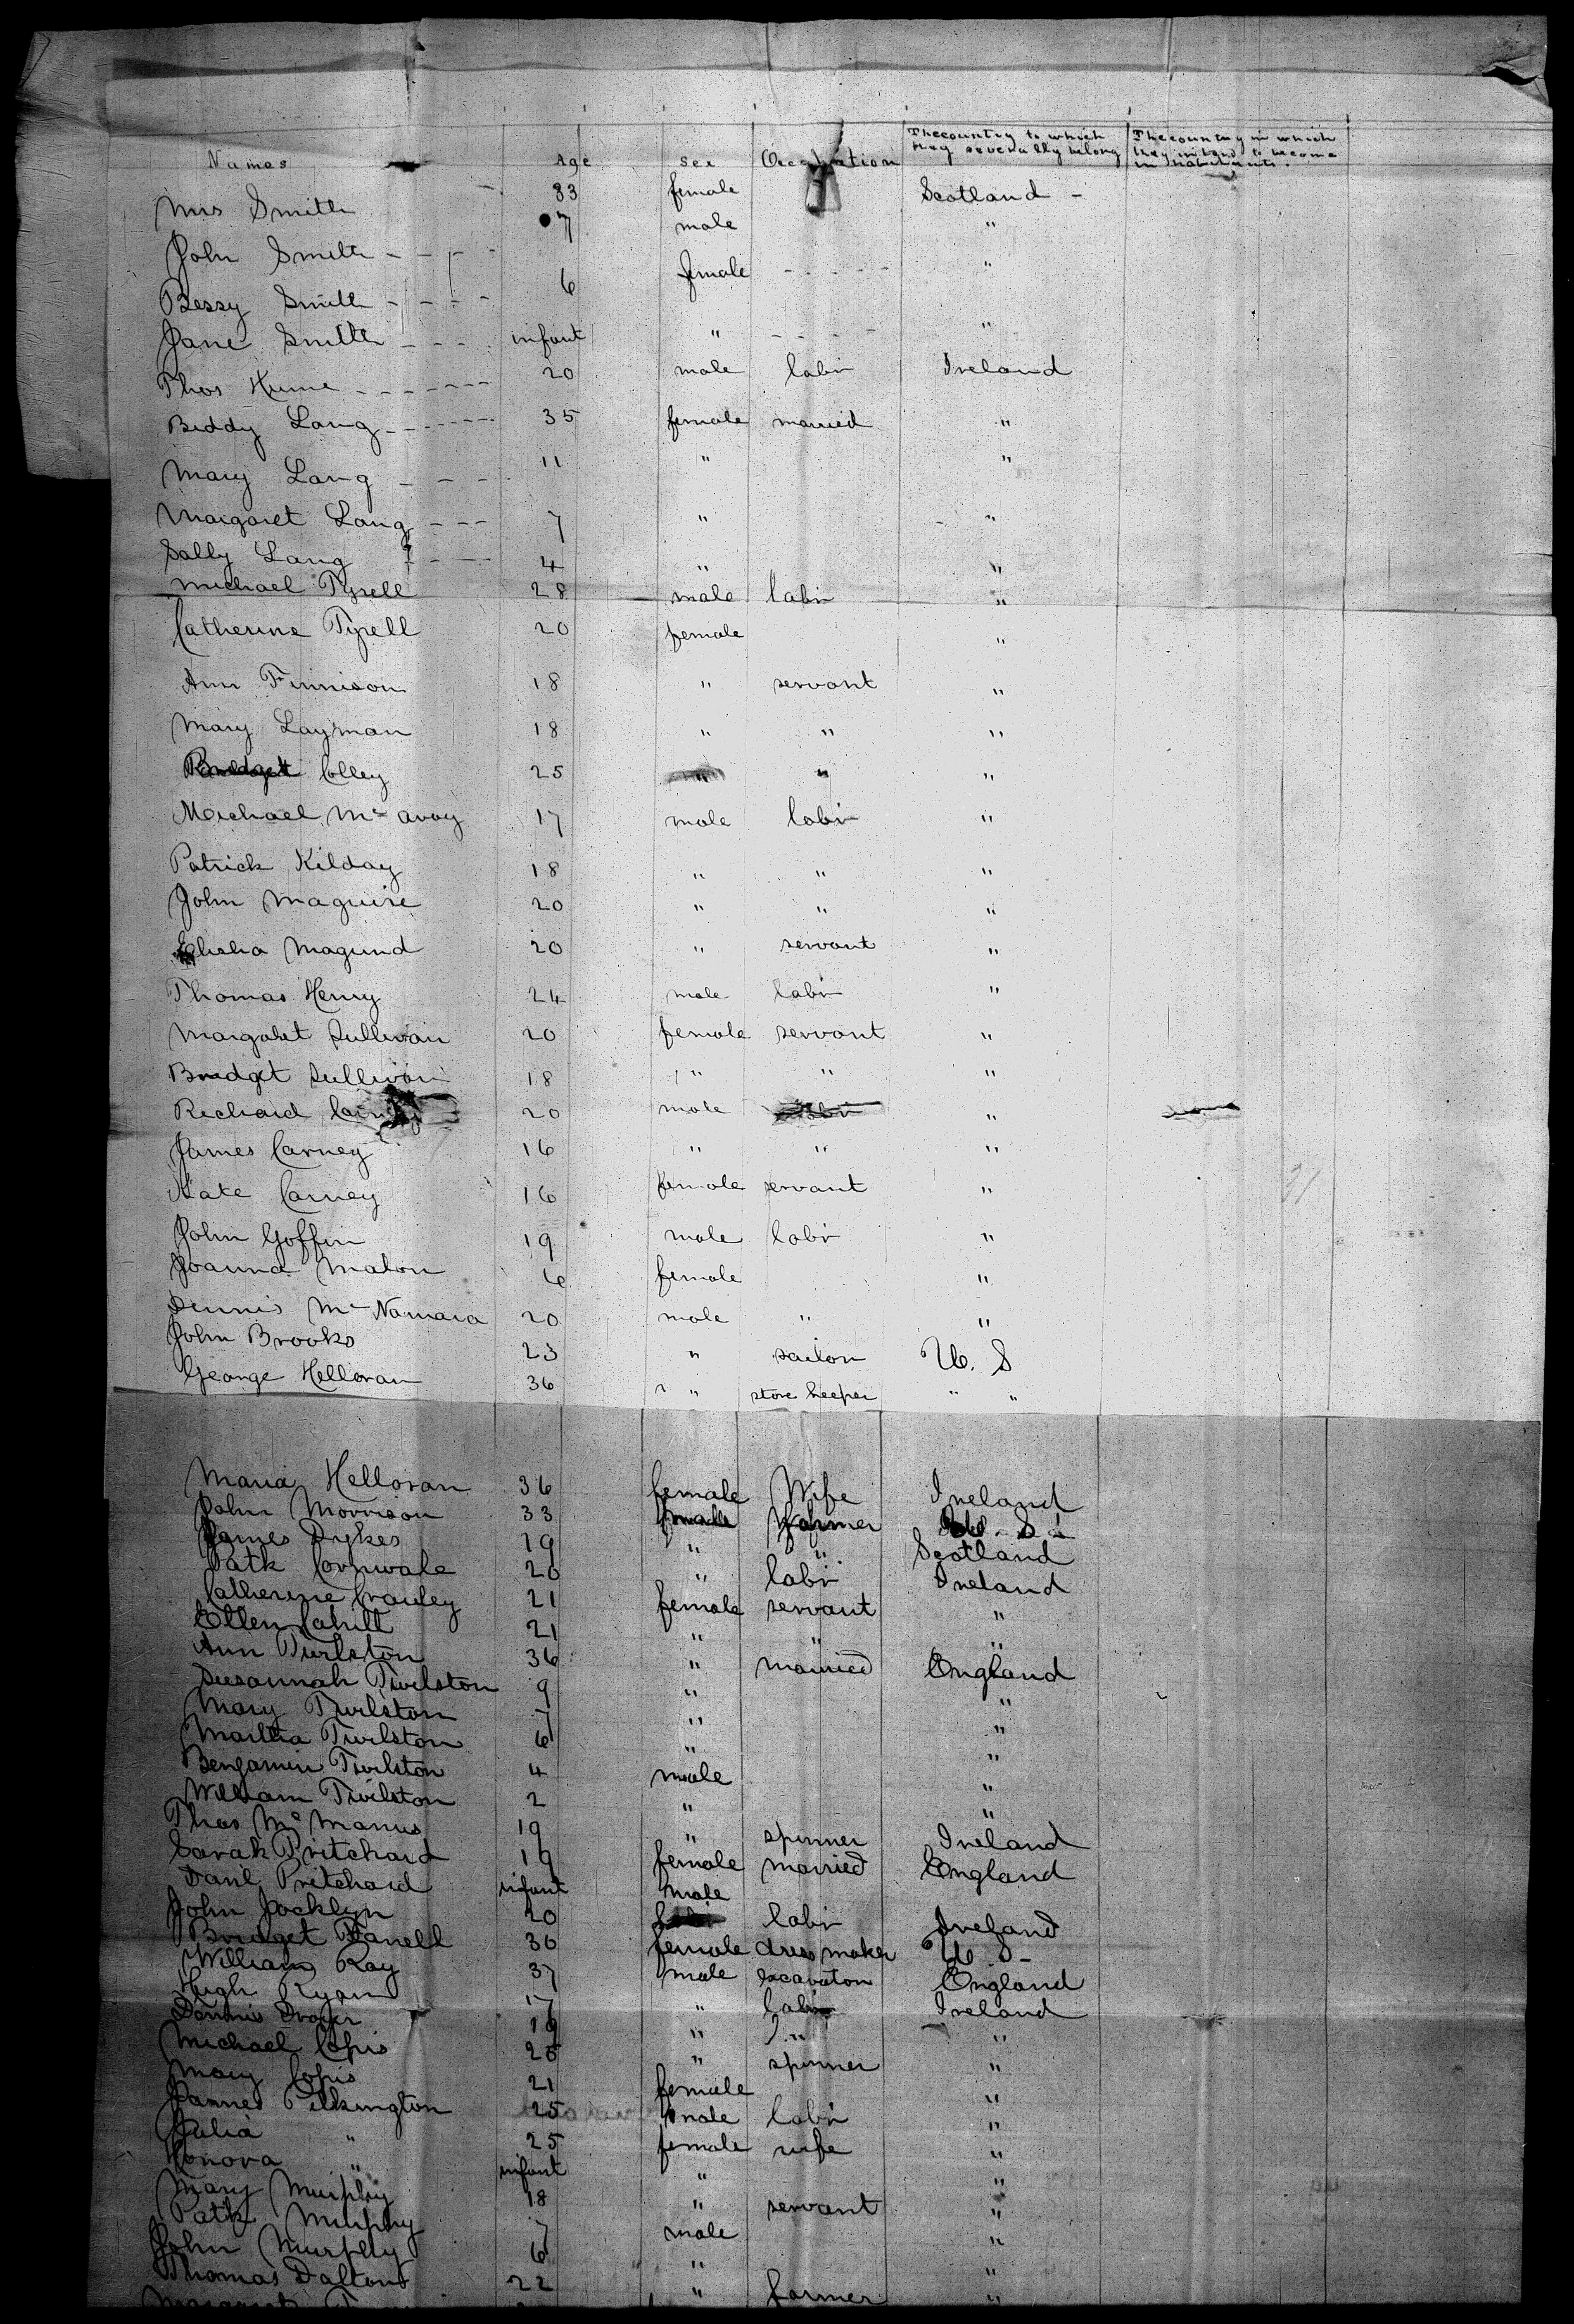 Names Age Sex Occupation The country to which they severally belong The country in which they intend to become inhabitants.
Mrs Smith 33 female Scotland -
John Smith 7 male "
Bessy Smith 6 female "
Jane Smith infant " "
Thos Hume 20 male labr Ireland
Biddy Lang 35 female married "
Mary Lang 11 " "
Margaret Lang 7 " "
Sally Lang 4 " "
Michael Tyrell 28 male labr "
Catherine Tyrell 20 female "
Ann Finnison 18 " servant "
Mary Layman 18 " " "
Bridget Colley 25 " " "
Michael Mc avoy 17 male labr "
Patrick Kilday 18 " " "
John Maguire 20 " " "
Magund 20 " servant "
Thomas Henry 24 male labr "
Margaret Sullivan 20 female servant "
Bridget Sullivan 18 " " "
Richard 20 male labr "
James Carney 16 " " "
Kate Carney 16 female servant "
John Goffin 19 male labr "
Joanna Malon 6 female "
Dennis Mc Namara 20 male " "
John Brooks 23 " sailor U. S
George Helloran 36 " store keeper " "
Maria Helloran 36 female Wife Ireland
John Morrison 33 male farmer U. S.
James Dykes 19 " " Scotland
Patk Cornwale 20 " labr Ireland
Catherine Crauley 21 female servant "
Ellen Cahill 21 " " "
Ann Twilston 36 " married England
Susannah Twilston 9 " "
Mary Twilston 7 " "
Martha Twilston 6 " "
Benjamin Twilston 4 male "
William Twilston 2 " "
Thos Mc Manus 19 " spinner Ireland
Sarah Pritchard 19 female married England
Danl Pritchard infant male
John Jocklyn 20 labr Ireland
Bridget 30 female dress maker U. S -
William Ray 37 male excavator England
Hugh Ryan 17 " labr Ireland
Dennis 19 " " "
Michael 26 " spinner "
Mary 21 female "
James Pilkington 25 male labr "
Julia " 25 female wife "
Honora " infant " "
Mary Murphy 18 " servant "
Patk Murphy 7 male "
John Murphy 6 " "
Thomas Dalton 22 " farmer "
Margaret